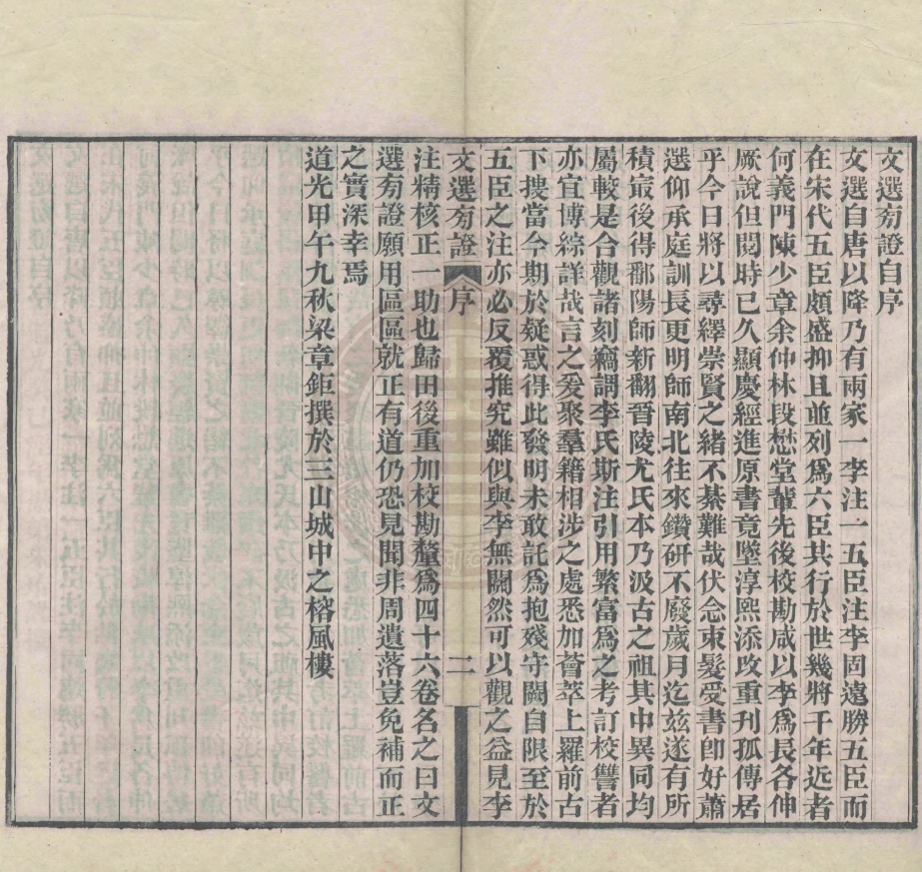 文選旁證自序
文選自唐以降乃有兩家一李注一五臣注李固遠勝五臣而
在宋代五臣頗盛抑且並列爲六臣其行於世幾將千年近者
何義門陳少章余仲林段懋堂輩先後校勘咸以李爲長各伸
厥說但閱時已久顯慶經進原書竟墜淳熙添改重刊孤傳居
乎今日將以尋繹崇賢之緒不綦難哉伏念束髮受書卽好蕭
選仰承庭訓長更明師南北往來鑽研不廢歲月迄兹遂有所
積冣後得鄱陽師新翻晉陵尤氏本乃汲古之祖其中異同均
屬較是合觀諸刻竊謂李氏斯注引用繁富爲之考訂校讐者
亦宜博綜詳哉言之爰聚羣籍相涉之處悉加薈萃上羅前古
下搜當今期於疑惑得此發明未敢託爲抱殘守闕自限至於
五臣之注亦必反覆推究雖似與李無關然可以觀之益見李
文選旁證
序
二
注精核正一助也歸田後重加校勘釐爲四十六卷名之曰文
選旁證願用區區就正有道仍恐見聞非周遺落豈免補而正
之實深幸焉
道光甲午九秋梁章鉅撰於三山城中之榕風樓